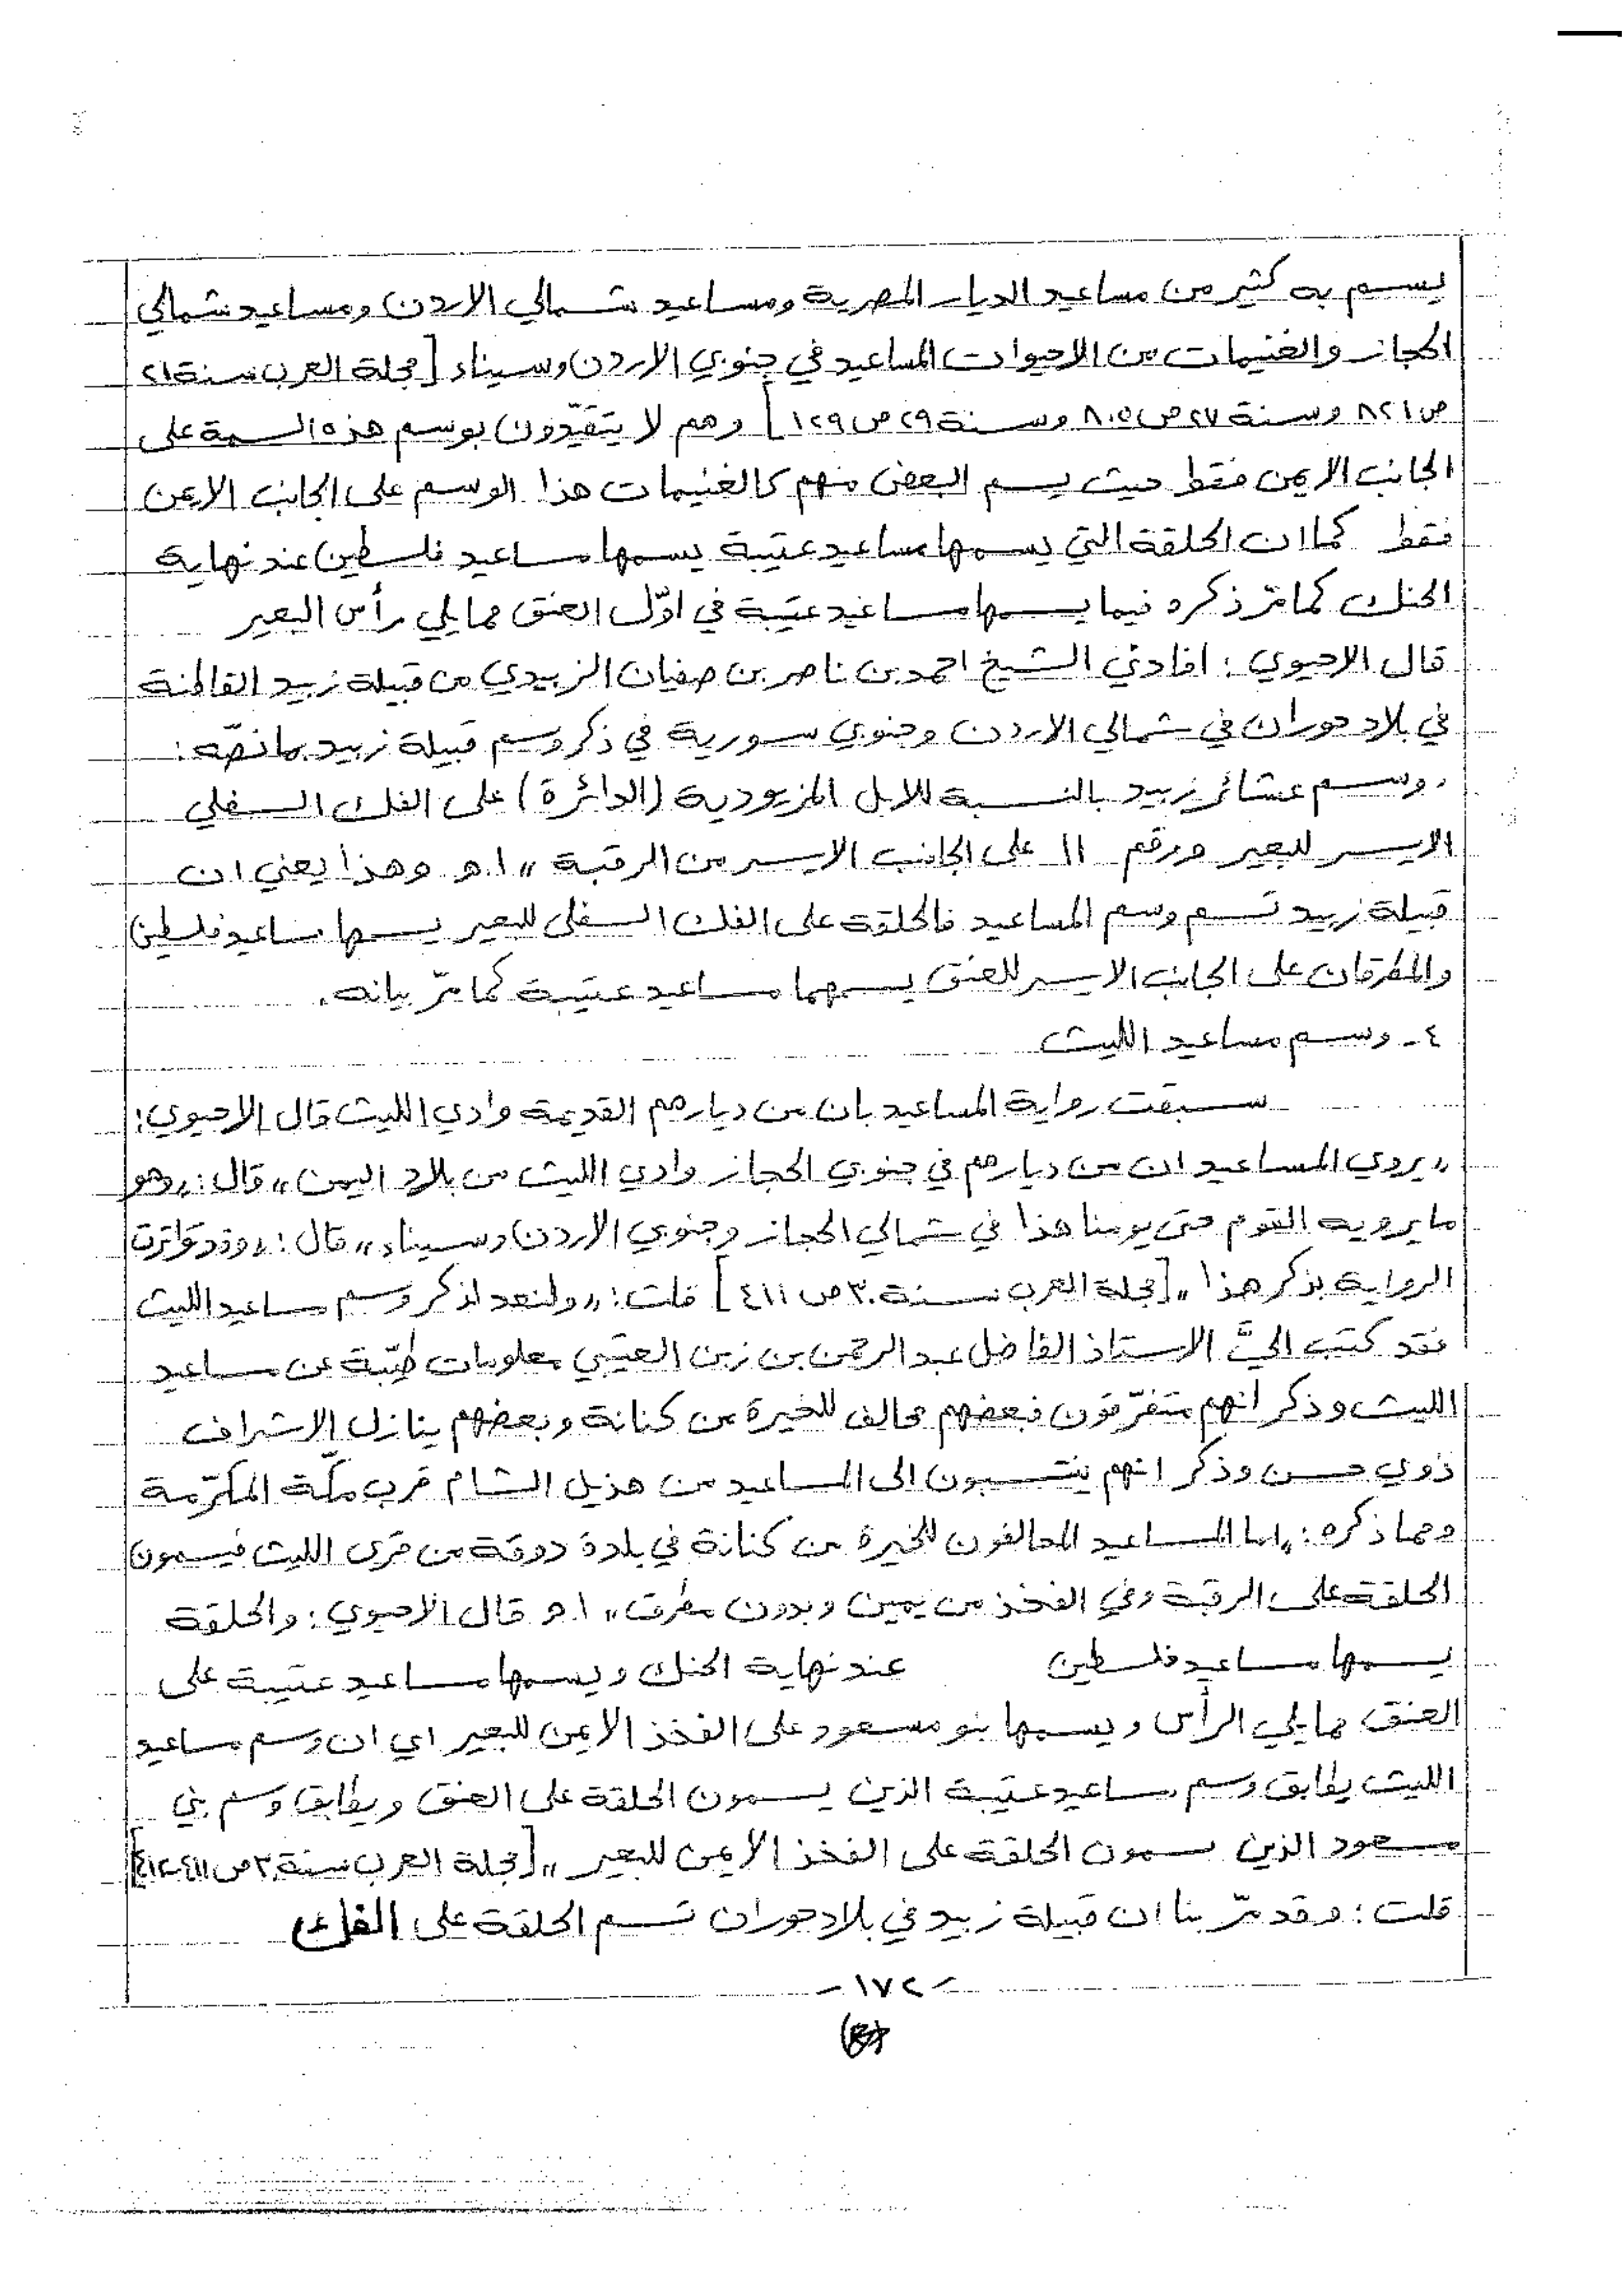 يسم به كثير من مساعيد الديار المصرية ومساعيد شمالي الاردن ومساعيد شمالي
الحجاز والغنيمات من الاحيوات المساعيد في جنوبي الاردن وسيناء [مجلة العرب سنة ٢١
ص ٨٢١ وسنة ٢٧ ص ٨٠٥ وسنة ٢٩ ص ١٢٩] وهم لا يتقيّدون بوسم هذه السمة على
الجانب الايمن فقط حيث يسم البعض منهم كالغنيمات هذا الوسم على الجانب الايمن
فقط كما ان الحلقة التي يسمها مساعيد عتيبة يسمها مساعيد فلسطين عند نهاية
الحنك كما مرّ ذكره فيما يسمها مساعيد عتيبة في اوّل العنق مما يلي رأس البعير
قال الاحيوي : افادني الشيخ احمد بن ناصر بن صفيان الزبيدي من قبيلة زبيد القاطنة
في بلاد حوران في شمالي الاردن وجنوبي سورية في ذكر وسم قبيلة زبيد بما نصّه :
„ وسم عشائر زبيد بالنسبة للابل المزيودية (الدائرة) على الفك السفلي
الايسر للبعير ورقم ١١ على الجانب الايسر من الرقبة „ ا.ه وهذا يعني ان
قبيلة زبيد تسم وسم المساعيد فالحلقة على الفك السفلى للبعير يسمها مساعيد فلسطين
والمطرقان على الجانب الايسر للعنق يسمهما مساعيد عتيبة كما مرّ بيانه.
٤- وسم مساعيد الليث
سبقت رواية المساعيد بان من ديارهم القديمة وادي الليث قال الاحيوي :
„ يروي المساعيد ان من ديارهم في جنوبي الحجاز وادي الليث من بلاد اليمن „ قال : „ وهو
ما يرويه القوم حتى يومنا هذا في شمالي الحجاز وجنوبي الاردن وسيناء „ قال : „ وقد تواترت
الرواية بذكر هذا „ [مجلة العرب سنة ٣٠ ص ٤١١] قلت : „ ولنعد لذكر وسم مساعيد الليث
فقد كتب اليَّ الاستاذ الفاضل عبد الرحمن بن زبن العتيبي معلومات طيّبة عن مساعيد
الليث وذكر انهم متفرّقون فبعضهم محالف للخيرة من كنانة وبعضهم ينازل الاشراف
ذوي حسن وذكر انهم ينتسبون الى المساعيد من هذيل الشام قرب مكّة المكرّمة
ومما ذكره : „ اما المساعيد المحالفون للخيرة من كنانة في بلدة دوقة من قرى الليث فيسمون
الحلقة على الرقبة وفي الفخذ من يمين وبدون مطرق „ ا.ه قال الاحيوي : والحلقة
يسمها مساعيد فلسطين عند نهاية الحنك ويسمها مساعيد عتيبة على
العنق مما يلي الرأس ويسمها بنو مسعود على الفخذ الايمن للبعير اي ان وسم مساعيد
الليث يطابق وسم مساعيد عتيبة الذين يسمون الحلقة على العنق ويطابق وسم بني
مسعود الذين يسمون الحلقة على الفخذ الأيمن للبعير „ [مجلة العرب سنة ٣٠ ص ٤١١-٤١٢]
قلت : وقد مرّ بنا ان قبيلة زبيد في بلاد حوران تسم الحلقة على الفك
- ١٧٢ -